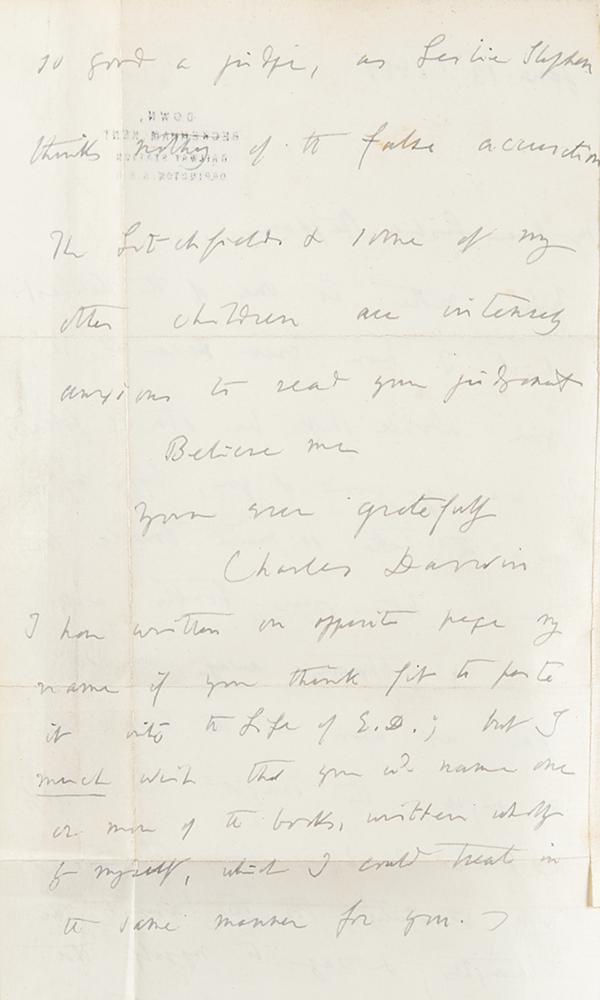 so good a judge, as Leslie Stephen
thinks nothing of the false accusation
The Litchfields & some of my
other children are intensely
anxious to read your judgment
Believe me
yours ever gratefully
Charles Darwin
I have written on opposite page my
name if you think fit to paste
it into the Life of E.D.; but I
much wish that you wd name one
or more of the books, written wholly
by myself, which I could treat in
the same manner for you.
DOWN,
BECKENHAM, KENT
RAILWAY STATION
ORPINGTON. S.E.R.